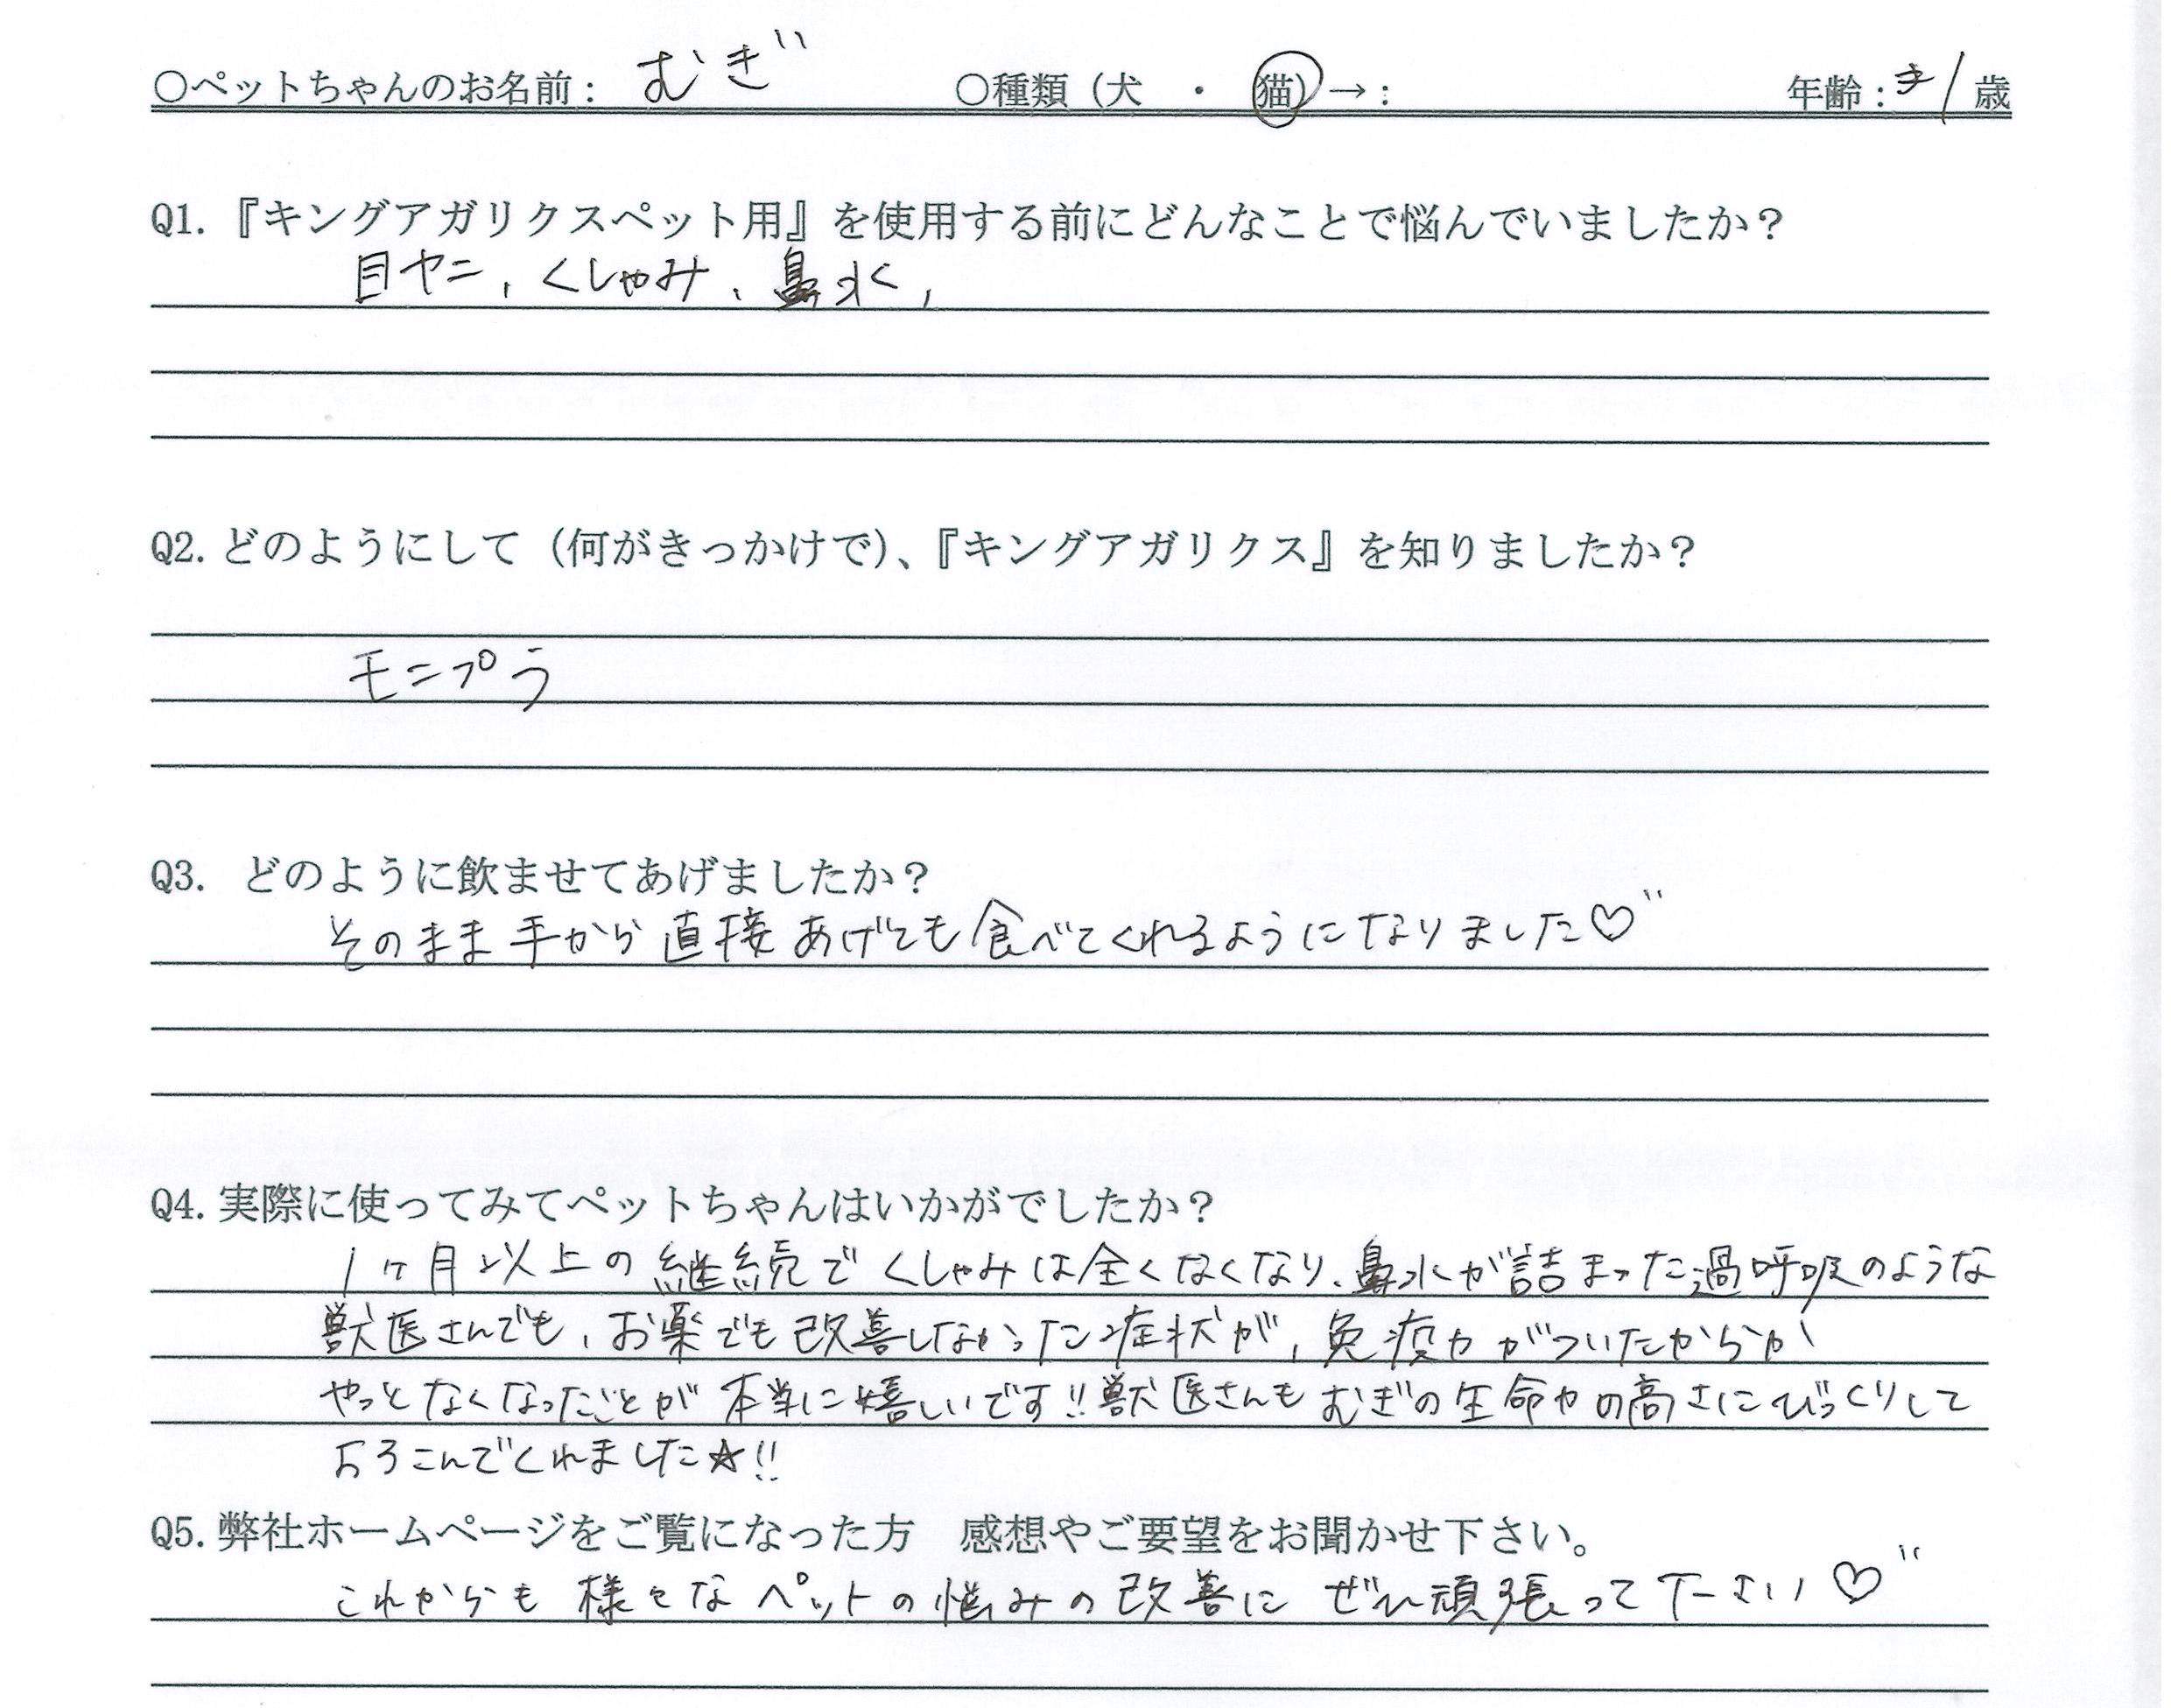 ○ペットちゃんのお名前： むぎ ○種類（犬 ・ 猫）→： 年齢： 1 歳
Q1.『キングアガリクスペット用』を使用する前にどんなことで悩んでいましたか？
目ヤニ、くしゃみ、鼻水、
Q2.どのようにして（何がきっかけで）、『キングアガリクス』を知りましたか？
モニプラ
Q3. どのように飲ませてあげましたか？
そのまま手から直接あげても食べてくれるようになりました♡"
Q4.実際に使ってみてペットちゃんはいかがでしたか？
1ヶ月以上の継続でくしゃみは全くなくなり、鼻水が詰まった過呼吸のような
獣医さんでも、お薬でも改善しなかった症状が、免疫力がついたからか
やっとなくなったことが本当に嬉しいです!!獣医さんもむぎの生命力の高さにびっくりして
よろこんでくれました☆!!
Q5.弊社ホームページをご覧になった方 感想やご要望をお聞かせ下さい。
これからも様々なペットの悩みの改善にぜひ頑張って下さい♡"